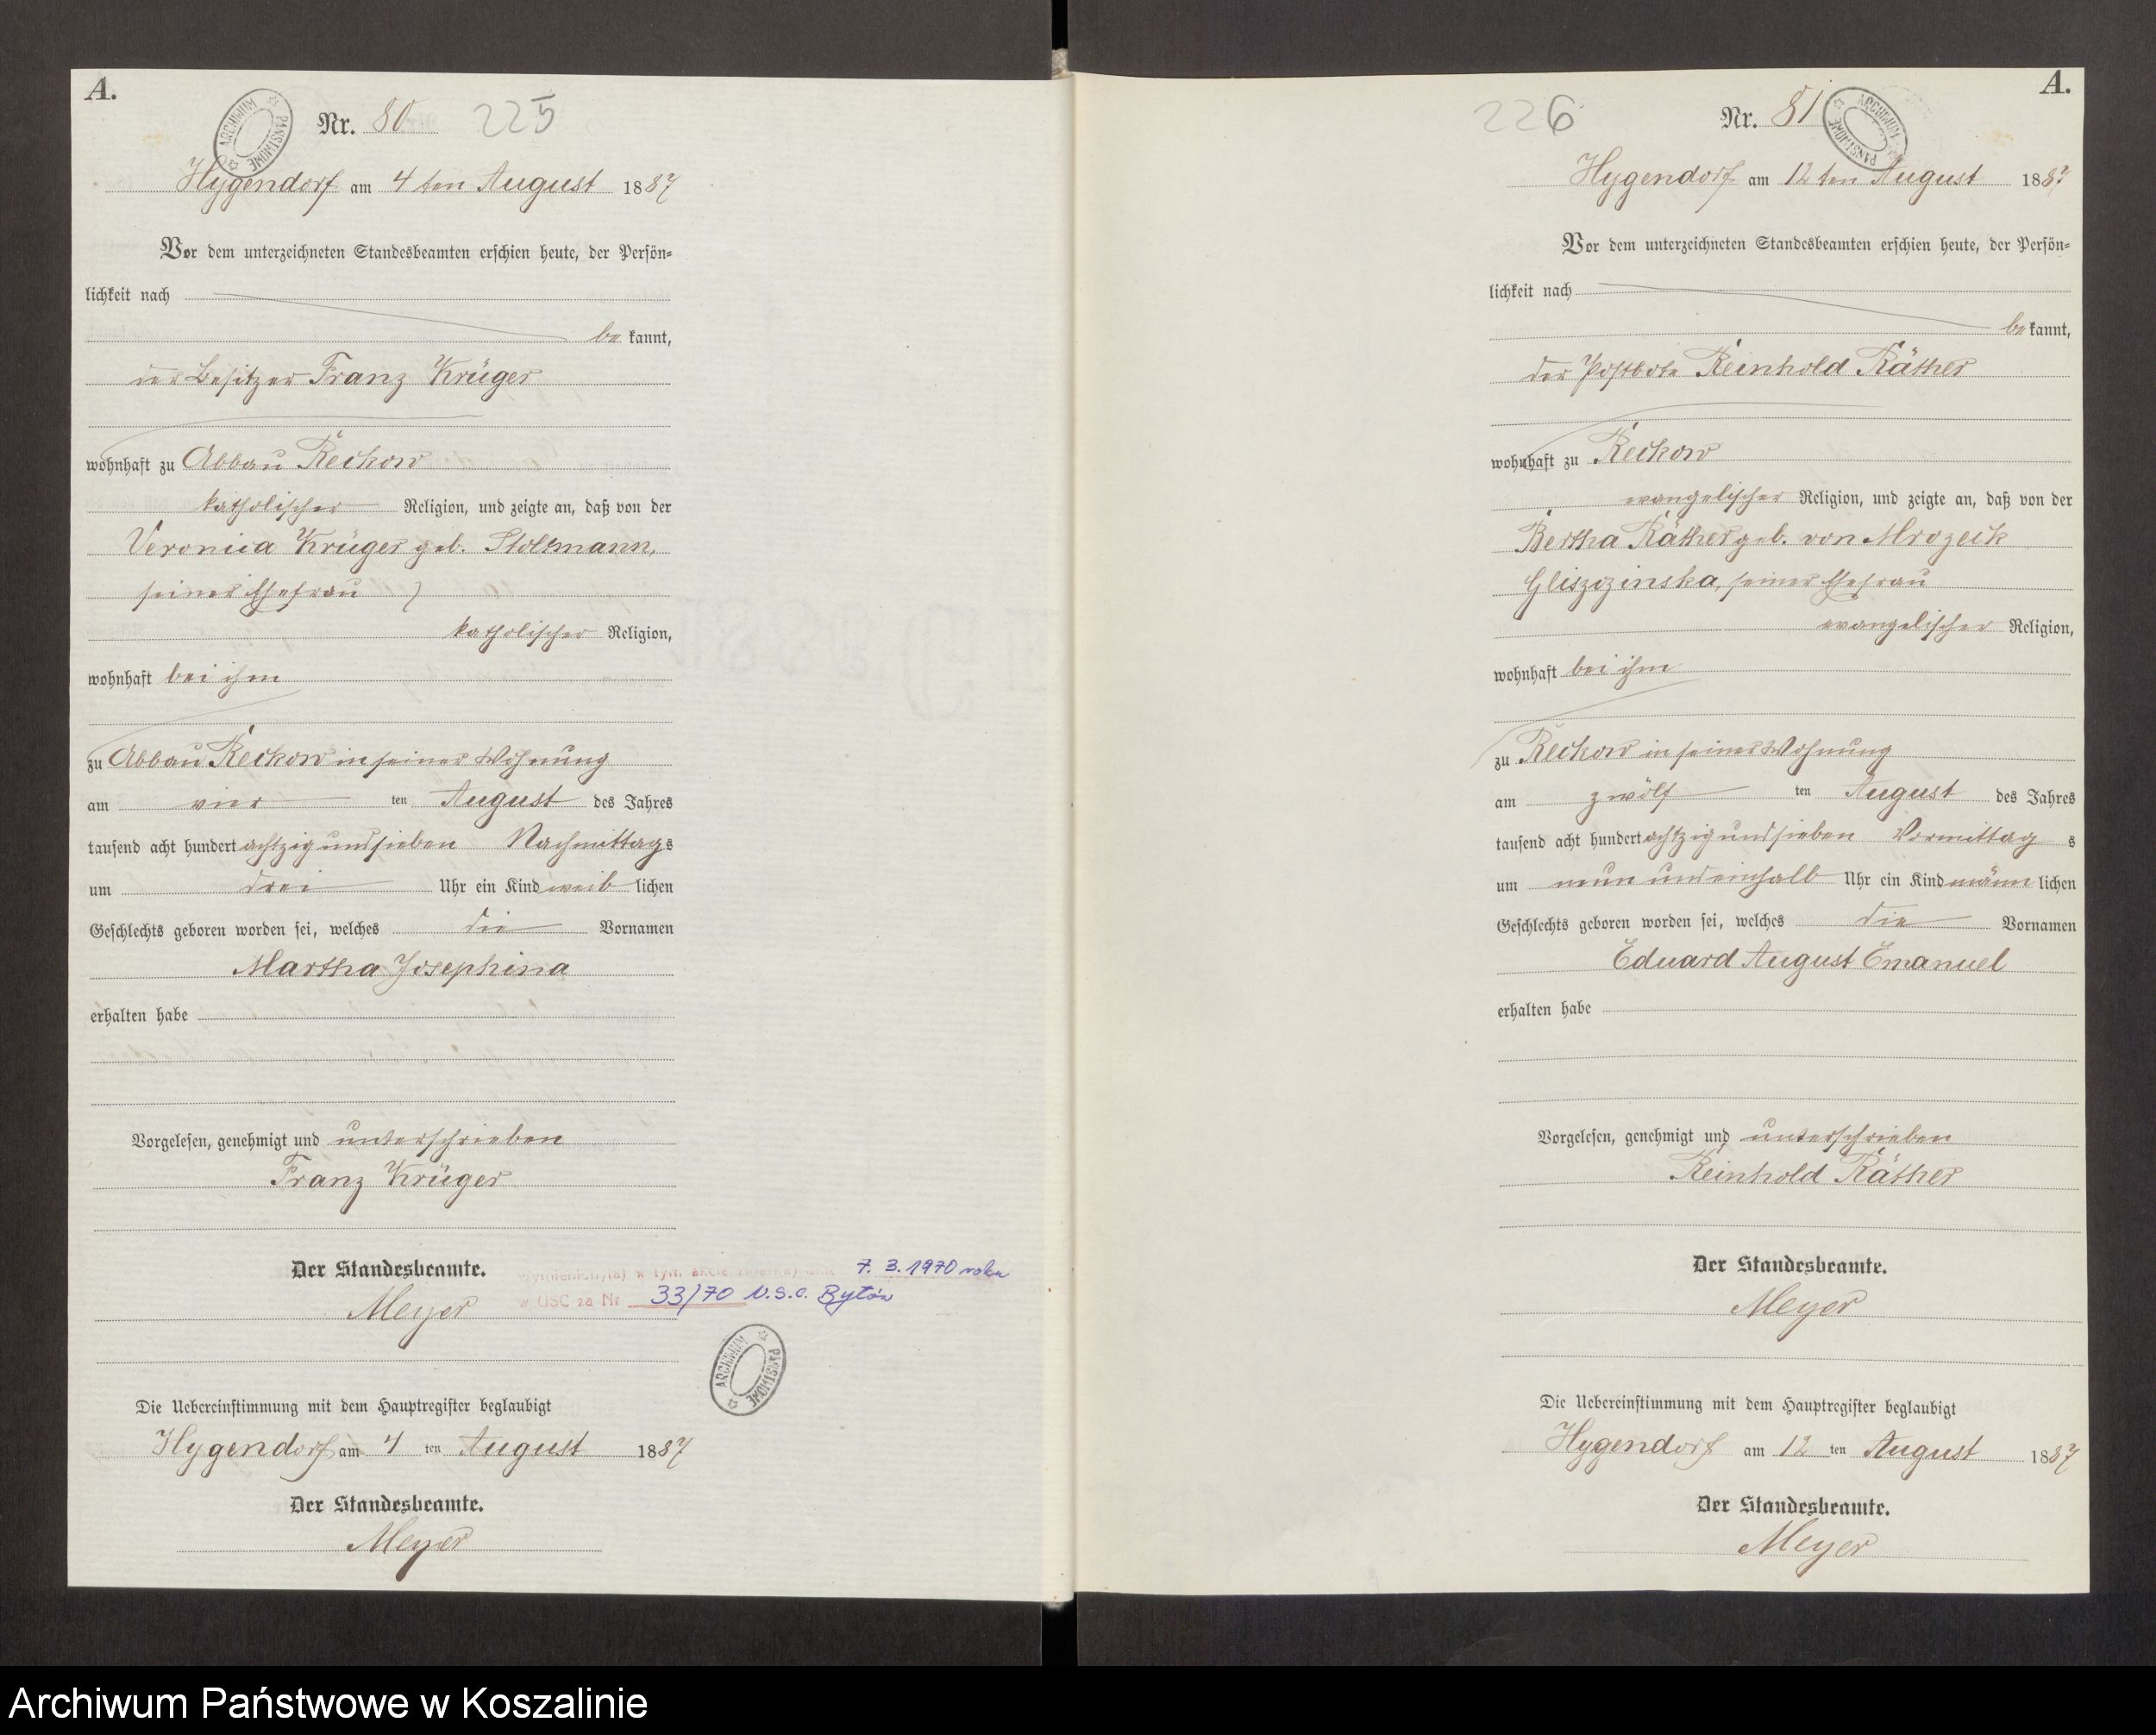 A.
ARCHIWUM PAŃSTWOWE
Nr. 80 225
Hygendorf am 4 ten August 1887
Vor dem unterzeichneten Standesbeamten erschien heute, der Persön-
lichkeit nach
be kannt,
der Besitzer Franz Krüger
wohnhaft zu Abbau Reckow
katholischer Religion, und zeigte an, daß von der
Veronica Krüger geb. Stoltmann,
seiner Ehefrau
katholischer Religion,
wohnhaft bei ihm
zu Abbau Reckow in seiner Wohnung
am vier ten August des Jahres
tausend acht hundert achtzig und sieben Nachmittags
um drei Uhr ein Kind weib lichen
Geschlechts geboren worden sei, welches die Vornamen
Martha Josephina
erhalten habe
Vorgelesen, genehmigt und unterschrieben
Franz Krüger
Der Standesbeamte.
Meyer
w tym akcie 7. 3. 1970 roku
w USC za Nr 33/70 U.S.C. Bytów
ARCHIWUM PAŃSTWOWE
Die Uebereinstimmung mit dem Hauptregister beglaubigt
Hygendorf am 4 ten August 1887
Der Standesbeamte.
Meyer
A.
226 Nr. 81
ARCHIWUM PAŃSTWOWE
Hygendorf am 12 ten August 1887
Vor dem unterzeichneten Standesbeamten erschien heute, der Persön-
lichkeit nach
be kannt,
der Postbote Reinhold Räther
wohnhaft zu Reckow
evangelischer Religion, und zeigte an, daß von der
Bertha Räther geb. von Mrozeck
Gliszczinska, seiner Ehefrau
evangelischer Religion,
wohnhaft bei ihm
zu Reckow in seiner Wohnung
am zwölf ten August des Jahres
tausend acht hundert achtzig und sieben Vormittag s
um neun und einhalb Uhr ein Kind männ lichen
Geschlechts geboren worden sei, welches die Vornamen
Eduard August Emanuel
erhalten habe
Vorgelesen, genehmigt und unterschrieben
Reinhold Räther
Der Standesbeamte.
Meyer
Die Uebereinstimmung mit dem Hauptregister beglaubigt
Hygendorf am 12 ten August 1887
Der Standesbeamte.
Meyer
Archiwum Państwowe w Koszalinie